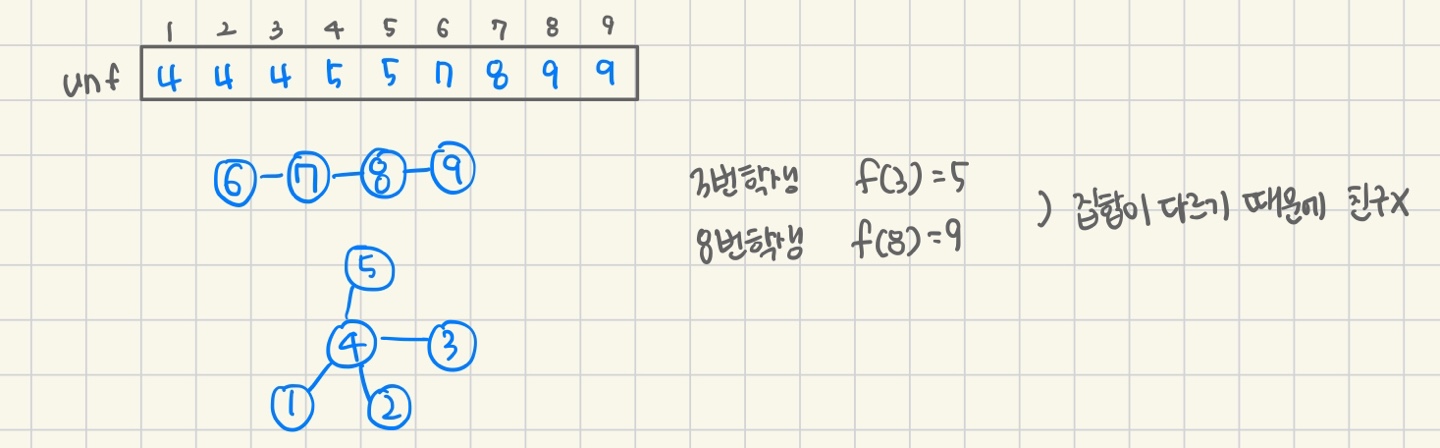 1 2 3 4 5 6 7 8 9
unf 4 4 4 5 5 7 8 9 9
6 7 8 9
3번학생 f(3)=5
8번학생 f(8)=9
) 집합이 다르기 때문에 친구X
5
4 3
1 2